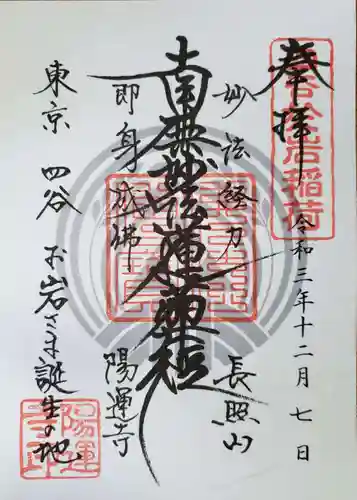 奉拝
令和三年十二月七日
妙法経力
長照山
南無妙法蓮華経
即身成佛
陽運寺
東京 四谷 お岩さま誕生の地
於岩稲荷
陽運寺印